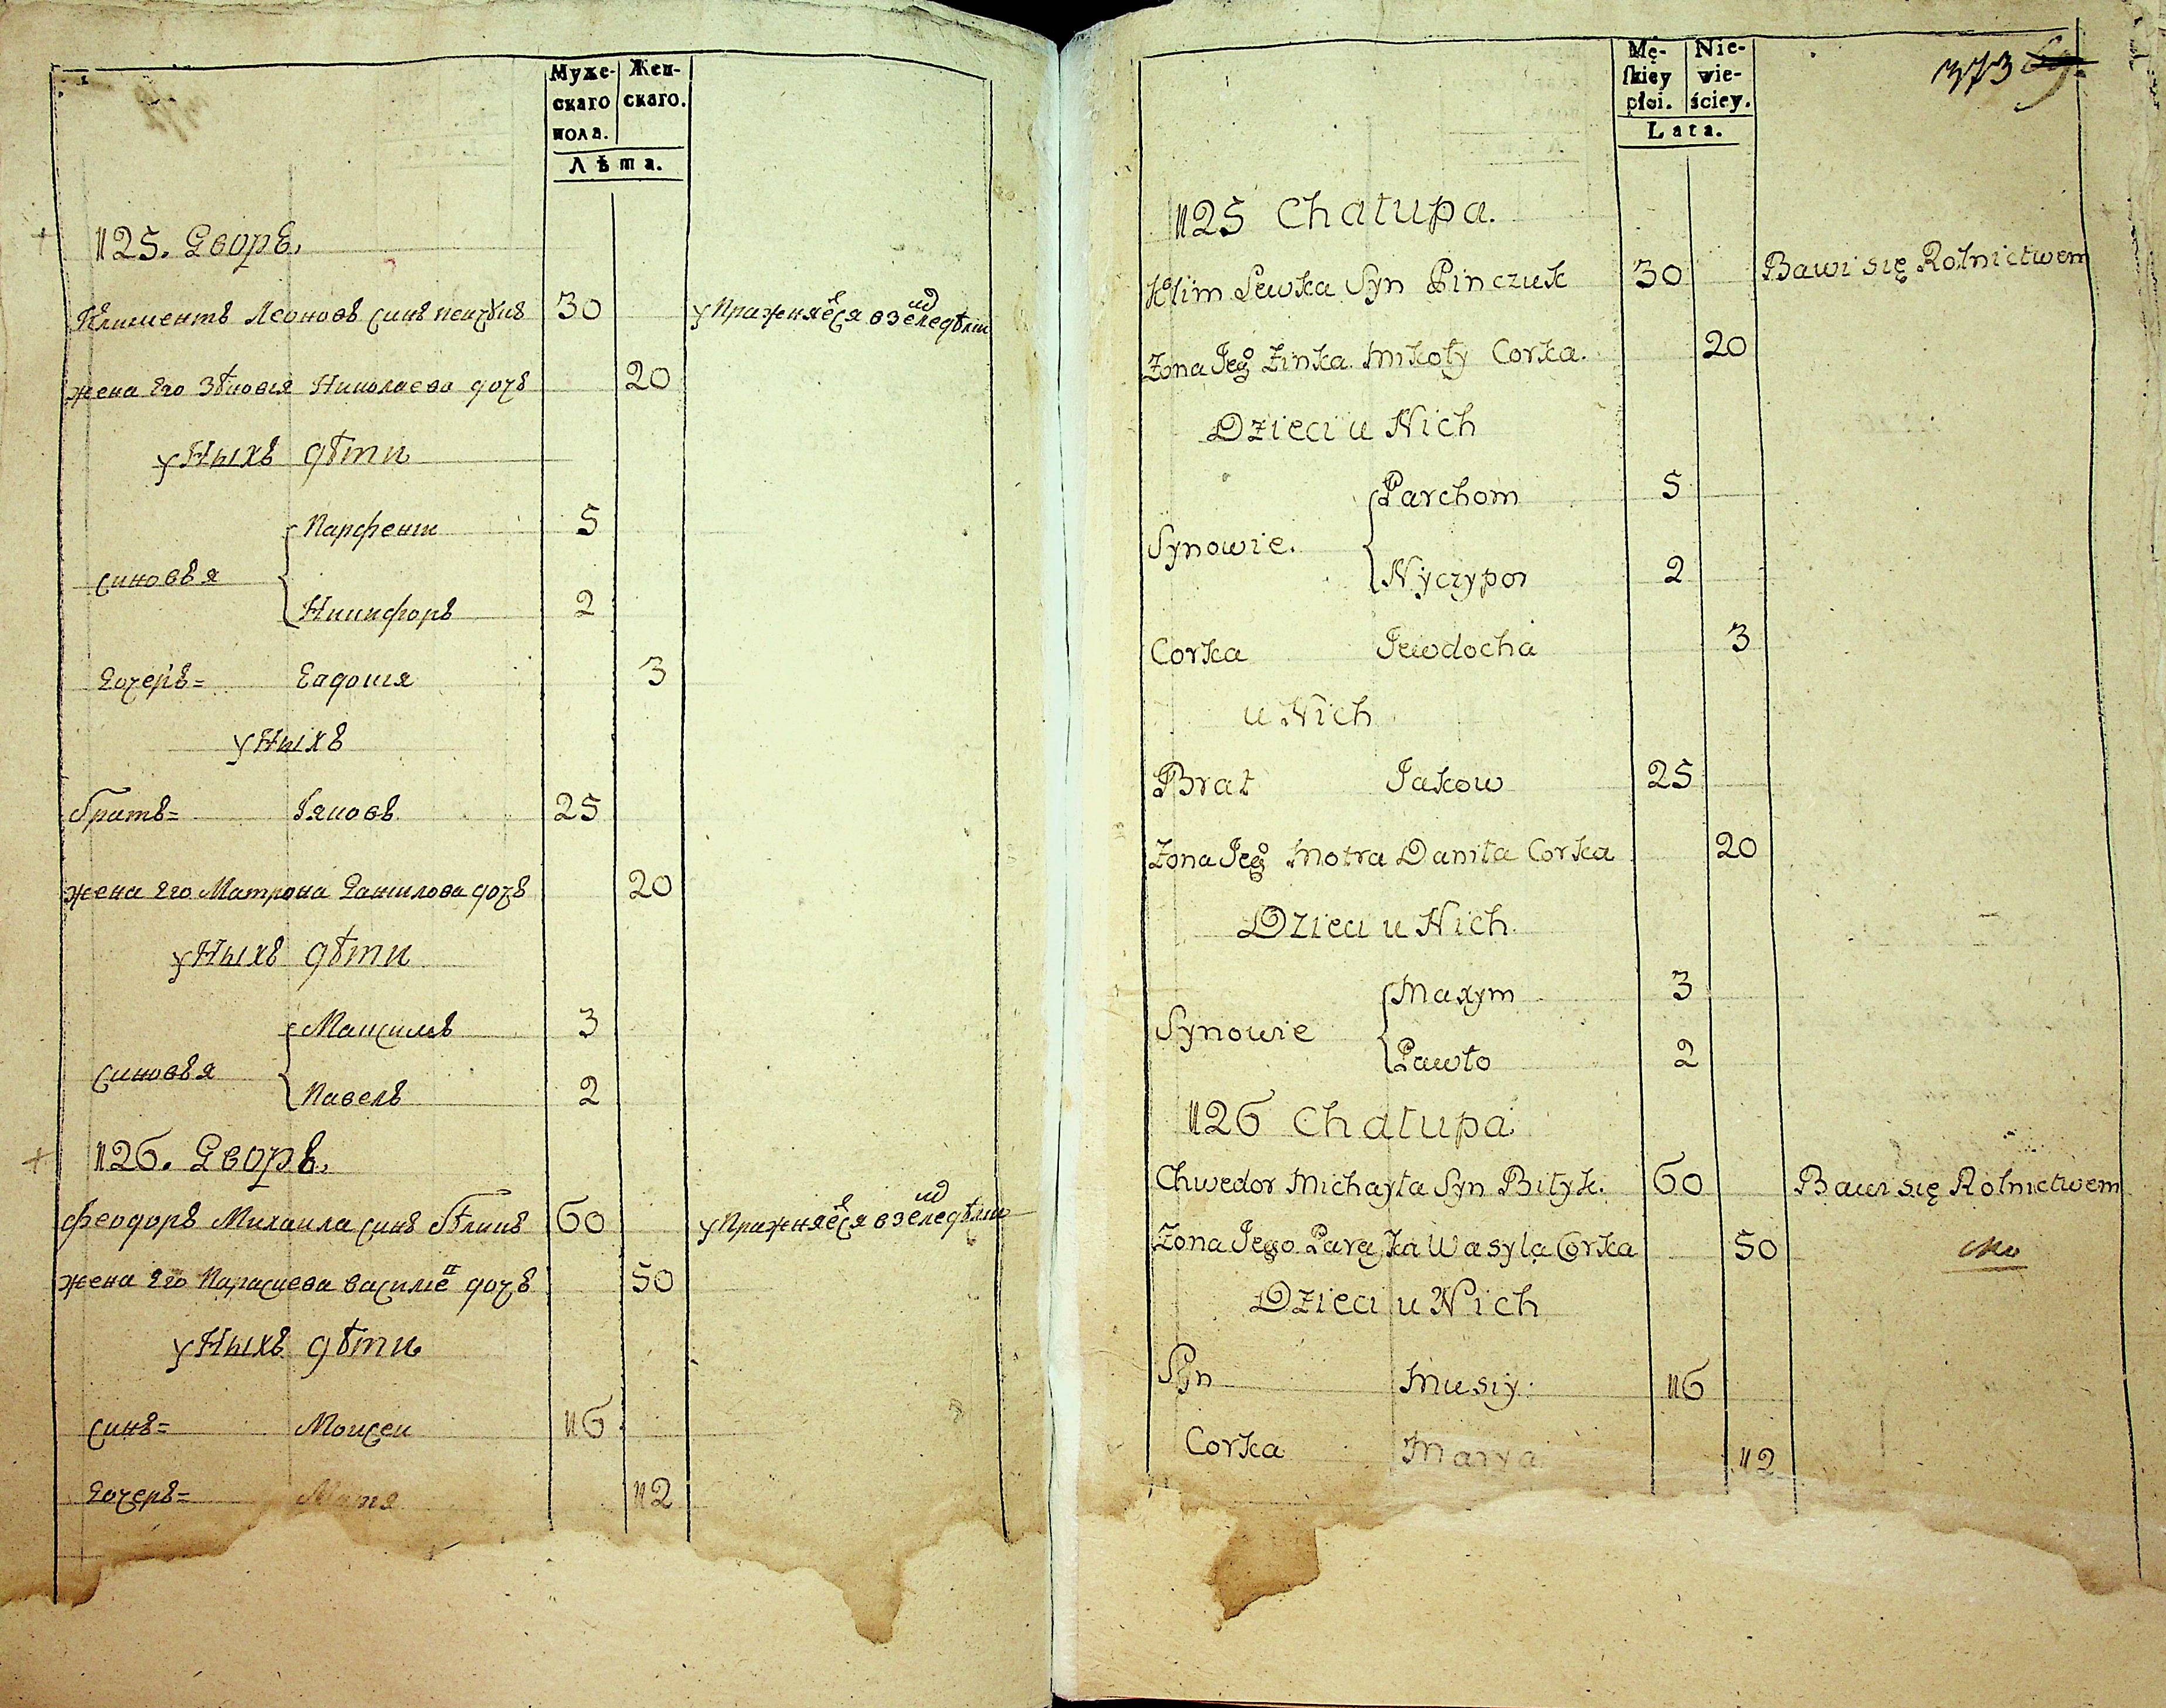 Муже-
скаго
пола.
Жен-
скаго.
Лѣта.
125. Дворъ.
Климентъ Леоновъ синъ пенчукъ 30 упражняется вземледѣлии
жена Его Зѣновія Николаева дочь 20
у Ныхъ дѣти
Парфени 5
синовья
Никифоръ 2
Дочерь= Евдошя 3
у Ныхъ
братъ= Іяковъ 25
жена Его Матрона Данилова дочь 20
у Ныхъ дѣти
Максимъ 3
синовья
Павелъ 2
126. Дворъ.
Феодоръ Михаила синъ бѣликъ 60 упражняется вземледѣлии
жена Его Парасцева василіева дочь 50
у Ныхъ дѣти
синъ= Моисеи 16
Дочерь= 12
Mę-
skiey
płci.
Nie-
wie-
ściey.
Lata.
373
125 Chałupa.
Klim Lewka Syn Pinczuk 30 Bawi się Rolnictwem
Zona Jego Zinka Mikoły Corka. 20
Dzieci u Nich
Parchom 5
Synowie.
Nyczypor 2
Corka Jewdocha 3
u Nich
Brat Jakow 25
Zona Jego Motra Daniła Corka 20
Dzieci u Nich
Maxym 3
Synowie
Pawło 2
126 Chałupa
Chwedor Michayła Syn Biłyk. 60 Bawi się Rolnictwem
Zona Jego Paraska Wasyla Corka 50
Dzieci u Nich
Syn Musiy 16
Corka Marya 12